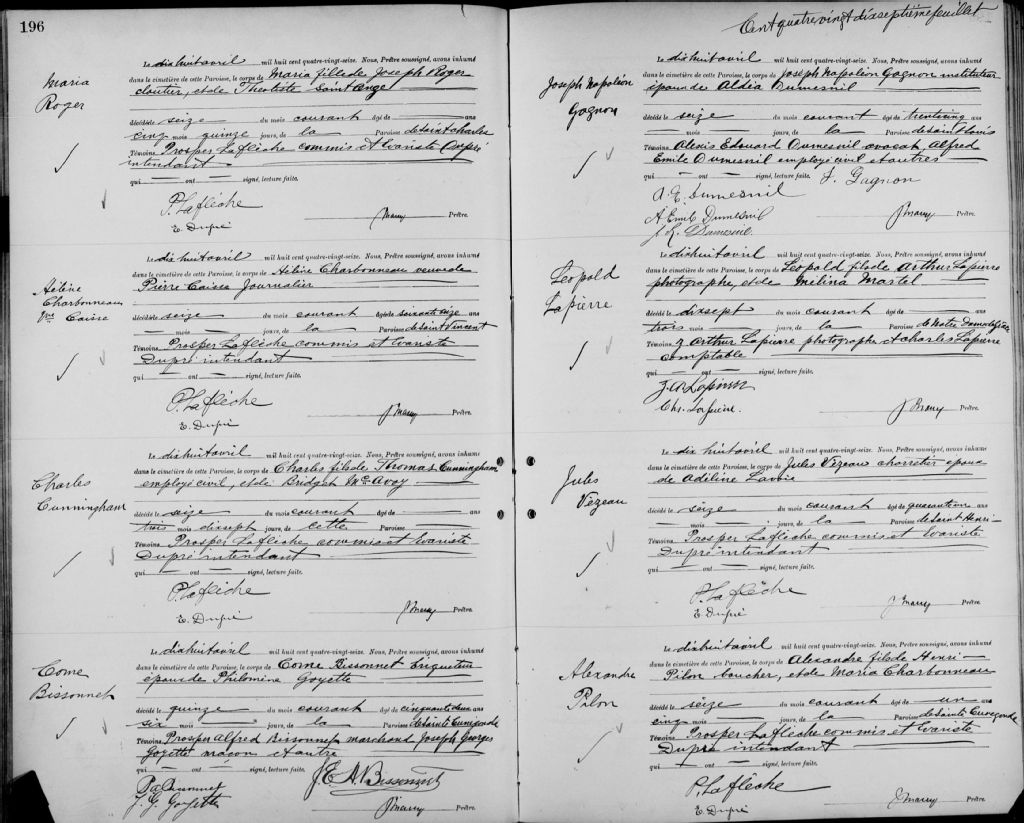 196
Maria
Roger
Le dixhuitavril mil huit cent quatre-vingt-seize. Nous, Prêtre soussigné, avons inhumé
dans le cimetière de cette Paroisse, le corps de Maria fillede Joseph Roger
cloutier, etde Theotiste Saint Ange
décédé le seize du mois courant âgé de ans
cinq mois quinze jours, de la Paroisse desaint Charles
Témoins Prosper Lafléche commis et Evariste Dupré
intendant
qui ont signé, lecture faite.
P. Lafléche
E. Dupré
Prêtre.
Hélène
Charbonneau
Vve Caisse
Le dixhuitavril mil huit cent quatre-vingt-seize. Nous, Prêtre soussigné, avons inhumé
dans le cimetière de cette Paroisse, le corps de Hélène Charbonneau veuvede
Pierre Caisse Journalier
décédé le seize du mois courant âgé de soixante seize ans
mois jours, de la Paroisse de Saint Vincent
Témoins Prosper Lafléche commis et Evariste
Dupré intendant
qui ont signé, lecture faite.
P. Lafléche
E. Dupré
Prêtre.
Charles
Cunningham
Le dixhuitavril mil huit cent quatre-vingt-seize. Nous, Prêtre soussigné, avons inhumé
dans le cimetière de cette Paroisse, le corps de Charles filsde Thomas Cunningham
employé civil, etde Bridget McAvoy
décédé le seize du mois courant âgé de ans
trois mois dixsept jours, de cette Paroisse
Témoins Prosper Lafléche commis et Evariste
Dupré intendant
qui ont signé, lecture faite.
P. Lafléche
E. Dupré
Prêtre.
Come
Bissonnet
Le dixhuitavril mil huit cent quatre-vingt-seize. Nous, Prêtre soussigné, avons inhumé
dans le cimetière de cette Paroisse, le corps de Come Bissonnet briquetier
époux de Philomène Goyette
décédé le quinze du mois courant âgé de cinquantedeux ans
six mois jours, de la Paroisse desainte Cunegonde
Témoins Prosper Alfred Bissonnet marchand Joseph Georges
Goyette maçon et autre
qui ont signé, lecture faite.
J. E. A. Bissonnet
J. G. Goyette
Prêtre.
Cent quatre vingt dixseptième feuillet
Joseph Napoléon
Gagnon
Le dixhuitavril mil huit cent quatre-vingt-seize. Nous, Prêtre soussigné, avons inhumé
dans le cimetière de cette Paroisse, le corps de Joseph Napoléon Gagnon instituteur
époux de Aldéa Dumesnil
décédé le seize du mois courant âgé de trentecinq ans
mois jours, de la Paroisse desaint Louis
Témoins Alexis Edouard Dumesnil avocat, Alfred
Emile Dumesnil employé civil et autres
qui ont signé, lecture faite. J. Gagnon
A. E. Dumesnil
A Emile Dumesnil
Dumesnil
Prêtre.
Léopold
Lapierre
Le dixhuitavril mil huit cent quatre-vingt-seize. Nous, Prêtre soussigné, avons inhumé
dans le cimetière de cette Paroisse, le corps de Léopold filsde Arthur Lapierre
photographe, etde Mélina Martel
décédé le dixsept du mois courant âgé de ans
trois mois jours, de la Paroisse de Notre Dame
Témoins Z Arthur Lapierre photographe et Charles Lapierre
comptable
qui ont signé, lecture faite.
Z. A Lapierre
Chs. Lapierre.
Prêtre.
Jules
Vézeau
Le dixhuitavril mil huit cent quatre-vingt-seize. Nous, Prêtre soussigné, avons inhumé
dans le cimetière de cette Paroisse, le corps de Jules Vézeau charretier époux
de Adéline Lavoie
décédé le seize du mois courant âgé de quaranteun ans
mois jours, de la Paroisse desaint Henri
Témoins Prosper Lafléche commis et Evariste
Dupré intendant
qui ont signé, lecture faite.
P. Lafléche
E. Dupré
Prêtre.
Alexandre
Pilon
Le dixhuitavril mil huit cent quatre-vingt-seize. Nous, Prêtre soussigné, avons inhumé
dans le cimetière de cette Paroisse, le corps de Alexandre filsde Henri
Pilon boucher, etde Maria Charbonneau
décédé le seize du mois courant âgé de un ans
cinq mois jours, de la Paroisse desainte Cunegonde
Témoins Prosper Lafléche commis et Evariste
Dupré intendant
qui ont signé, lecture faite.
P. Lafléche
E. Dupré
Prêtre.